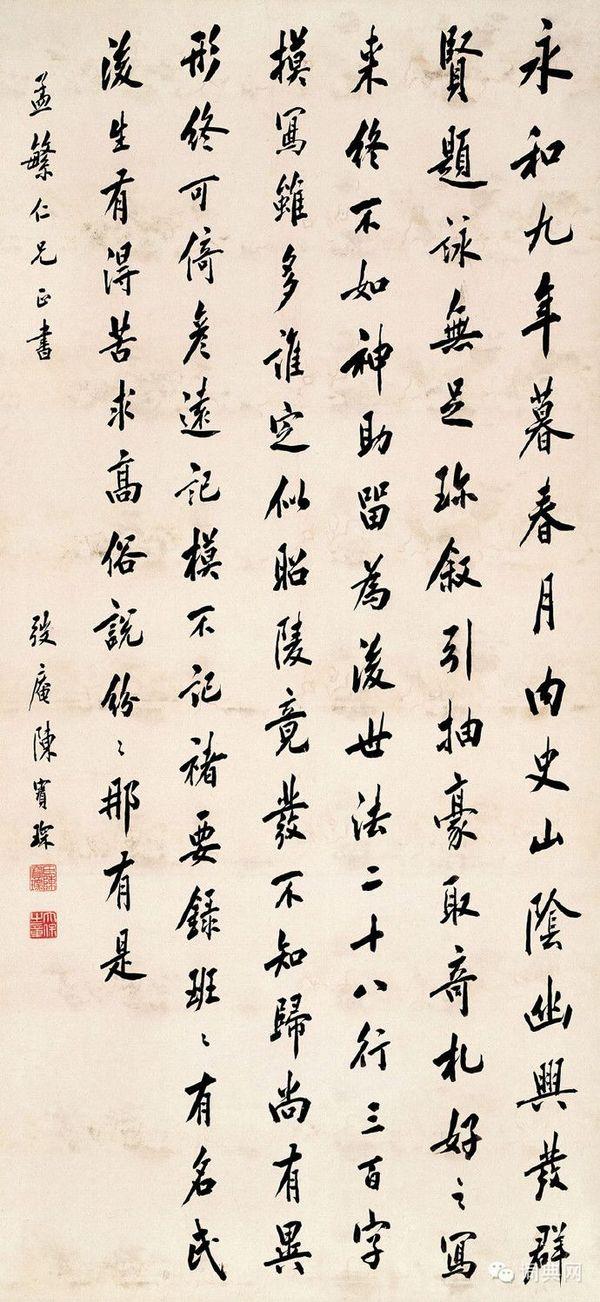 永和九年暮春月内史山陰幽興發群
賢題詠無足珍叙引抽豪取奇札好之寫
来終不如神助留為後世法二十八行三百字
摸寫雖多誰定似昭陵竟發不知歸尚有異
形終可倚彦遠記模不記褚要録班〻有名氏
後生有得苦求高俗說紛〻那有是
孟繁仁兄正書
弢庵陳寶琛
词典网